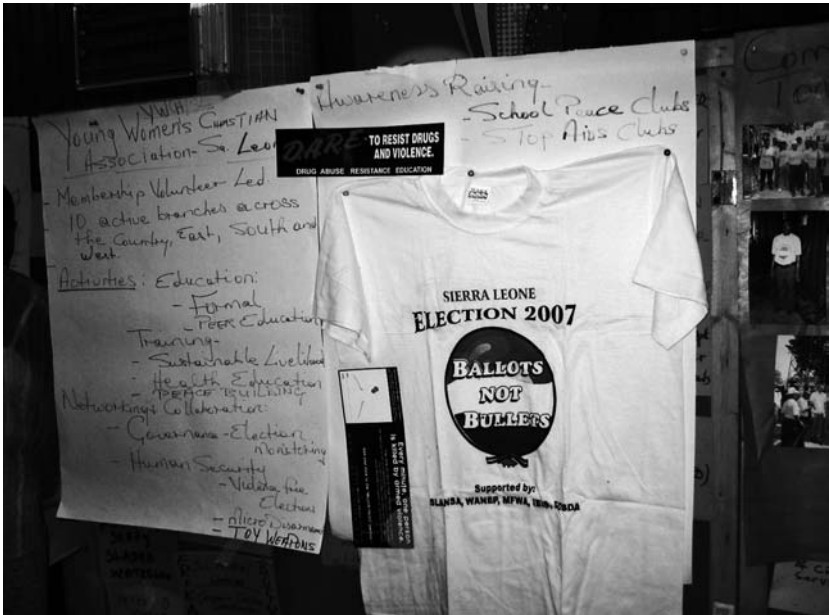 YWCA
Young Women's Christian
Association - Sa. Leon
- Membership Volunteer Led.
- 10 active branches across
the Country, East, South and
West.
Activities: Education:
- Formal
- PEER Education
Training -
- Sustainable Livelihood
- Health Education
- PEACE BUILDING
Networking & Collaboration:
- Governance - Election
monitoring
- Human Security
- Violence free
Elections
- Micro Disarmam
- TOY WEAPONS
Awareness Raising -
- School Peace Clubs
- STop Aids Clubs
DARE TO RESIST DRUGS
AND VIOLENCE.
DRUG ABUSE RESISTANCE EDUCATION
SIERRA LEONE
ELECTION 2007
BALLOTS
NOT
BULLETS
Supported by:
SLANSA, WANEP, MFWA,
Every minute, one person
is killed by armed violence.
Com